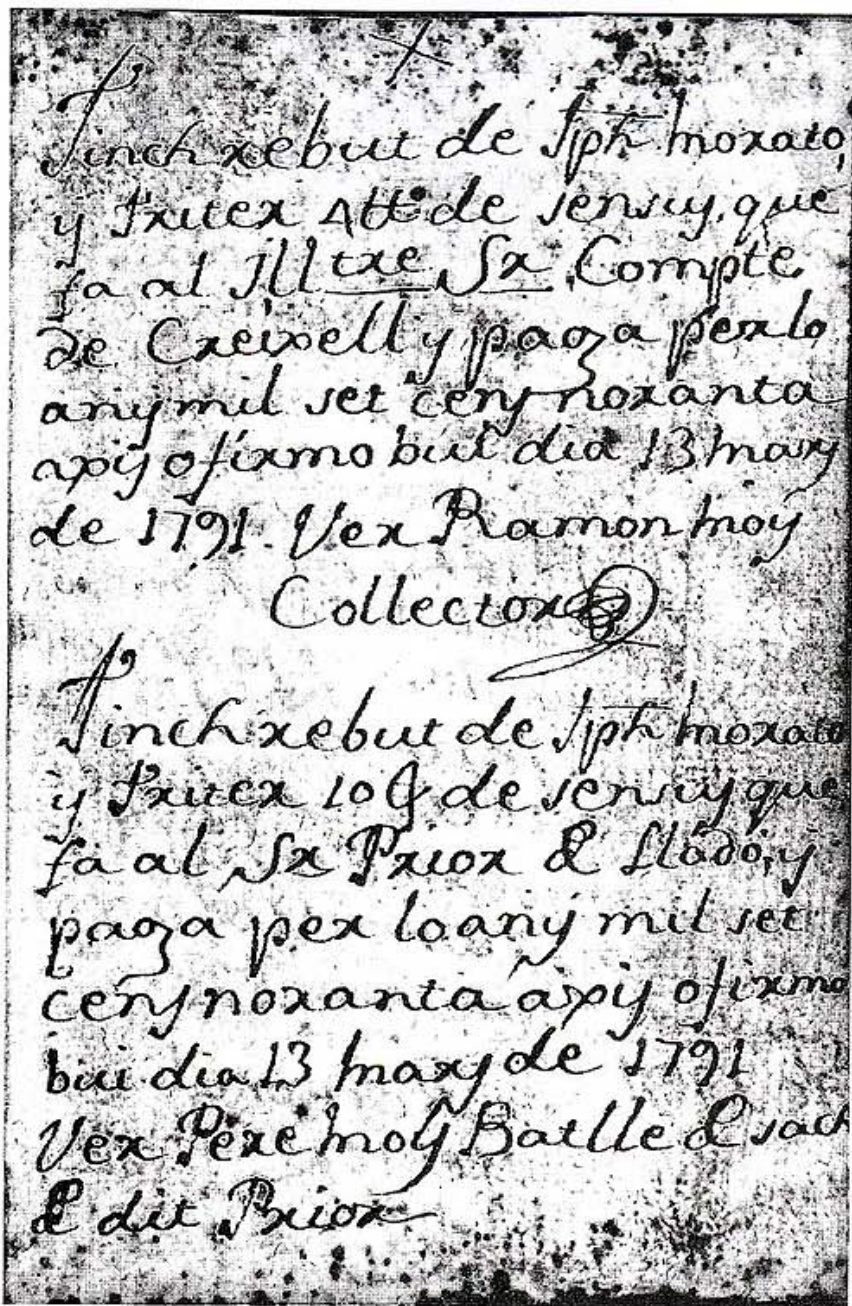 Tinch rebut de Jph morato
y Fruter de sensuy, que
fa al Illtre Sr Compte
de Creixell y paga per lo
any mil set cens noranta
axiy o firmo bui dia 13 mars
de 1791. Ver Ramon moy
Collector
Tinch rebut de Jph morato
y Fruter 10 de sensuy que
fa al Sr Prior de Llado, y
paga per lo any mil set
cens noranta axiy o firmo
bui dia 13 mars de 1791
Ver Pere moy Batlle de sach
de dit Prior